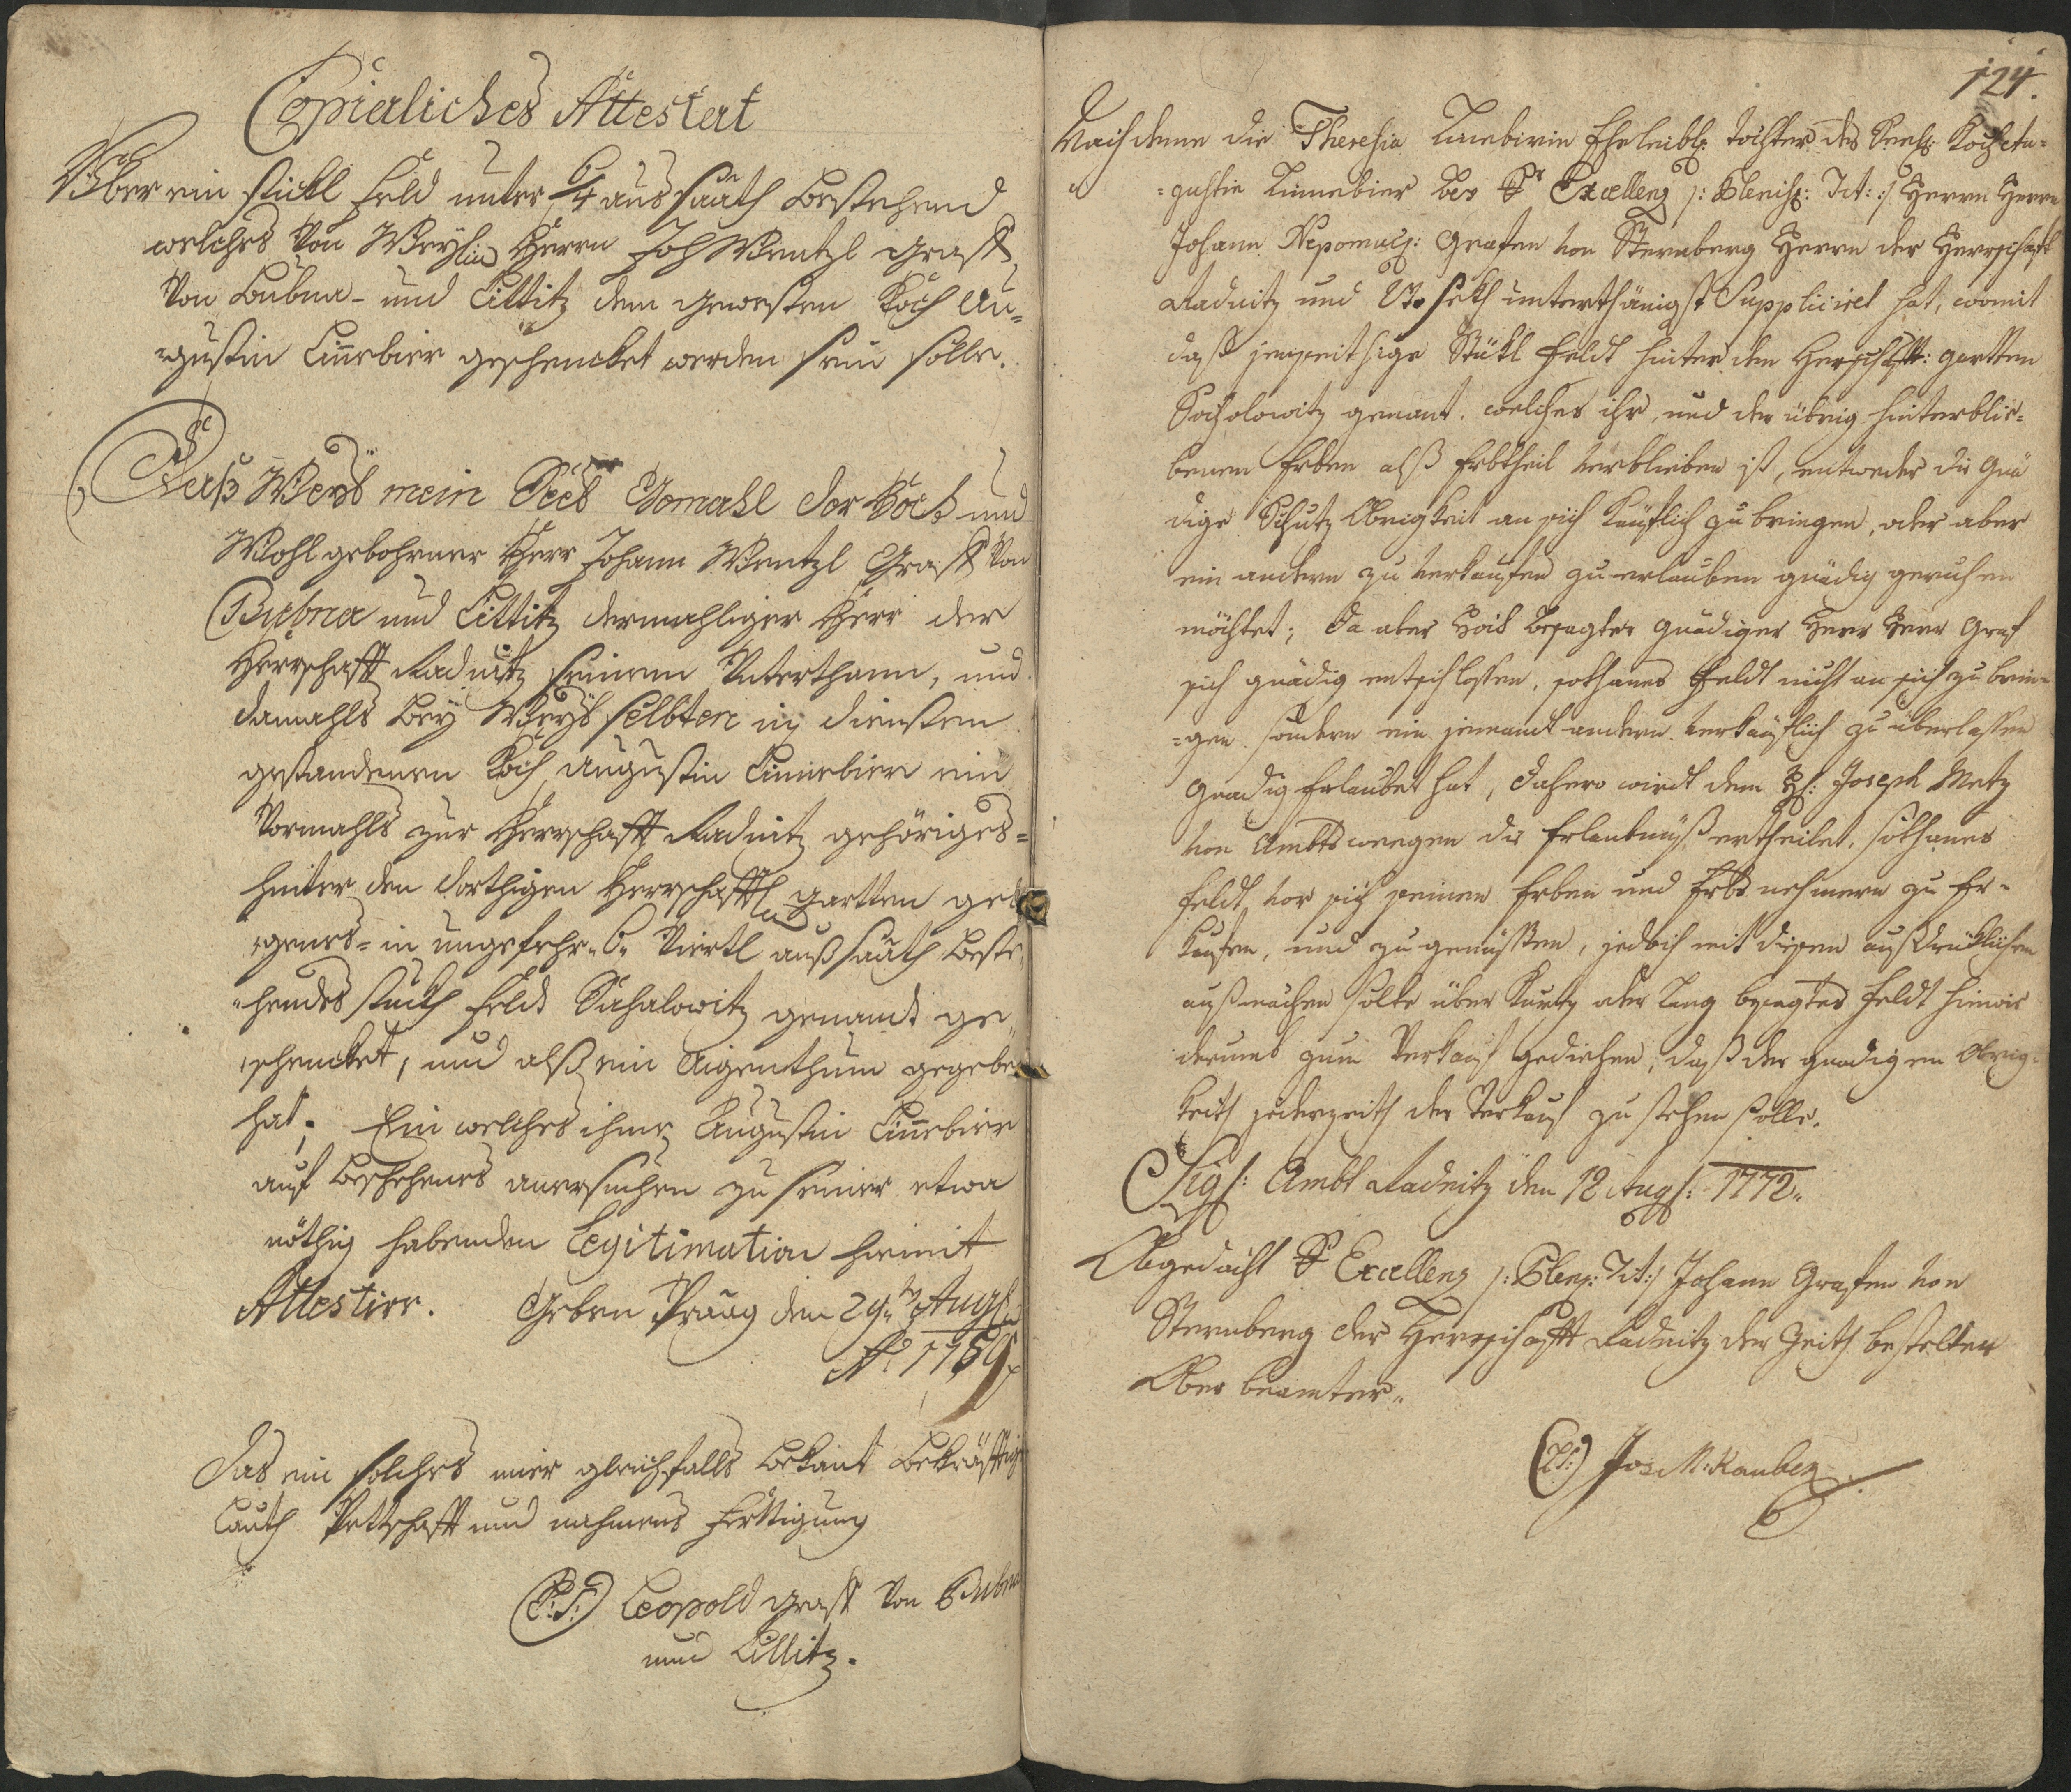 Copialiches Attestat
Über ein stückl Feld unter 6/4 aussaath bestehend
welches Von Weyl: Herrn Joh Wentzl Graff
Von Bubna- und Littitz dem gewesten Koch Au-
=gustin Linnebier geschencket worden sein solle.
Daß Weyl: mein Gemahl der Hoch und
Wohl gebohrner Herr Johann Wentzl Graff Von
Bubna und Littitz dermahliger Herr der
Herrschafft Radnitz seinem Unterthann, und
damahls bey Weyl: selbten in diensten
gestandenen Koch Augustin Linnebier ein
Vormahls zur Herrschafft Radnitz gehöriges=
hinter den dorthigen Herrschafftl: gartten gele
=genes= in ungefehr 6 Viertl außsaath beste
=hendes stuckh Feld Sichalowitz genandt ge
=schencket, und alß ein Aigenthum gegeben
hat; Ein welches ihme Augustin Linnebier
auf beschehenes anersuchen zu seiner etwa
nöthig habenden Legitimation hiemit
Attestire. Geben Praag den 29ten Aug:
Ao 1759
Das ein solches mir gleichfalls bekant bekräfftige
Lauth Pettschafft und nahmens Fertigung
(L:S:) Leopold Graff Von Bubna
und Littitz.
124.
Nach deme die Theresia Linnebirin Eheleibl: tochter des Seel: Koch Au-
=gustin Linnebier bey Sr Excellenz /: Plenis: Tit: :/ Herrn Herrn
Johann Nepomuc: Grafen von Sternberg Herrn der Herrschafft
Radnitz und unterthänigst Suppliciret hat, womit
daß jenseithige Stükl Feldt hinter dem Herschafftl: gartten
Sicholowitz genant. welches ihr, und den übrig hinterblie-
benen Erben alß Erbtheil verblieben ist, entweder die Gnä
dige Schutz Obrigkeit an sich Käuflich zu bringen, oder aber
ein andern zu verkaufen zu erlauben gnädig geruhen
möchtet; Da aber Hoch besagter gnädiger Herr Herr Graf
sich gnädig entschlossen, sothanes Feldt nicht an sich zu brin-
=gen sondern ein jemandt andern verkäuflich zu überlassen
gnädig Erlaubet hat, dahero wirdt dem H: Joseph Metz
von Ambts weegen die Erlaubnuß ertheilet, sothanes
Feldt vor sich seinen Erben und Erbs nehmern zu Er-
kaufen, und zu genüssen, jedoch mit diesen außdrücklichen
außnahmen solte über Kurtz oder Lang besagtes Feldt hinwie
derumb zum Verkauf gediehen, daß der gnädigen Obrig-
keith jederzeith der Verkauf zu stehen solle.
Sig: Ambt Radnitz den 12 Aug: 1772.
Obgedacht Sr Excellenz /: Plenis: Tit: :/ Johann Grafen von
Sternberg der Herrschafft Radnitz der Zeith bestelter
Ober beamter
(L:S:) Jos: M: Rauben